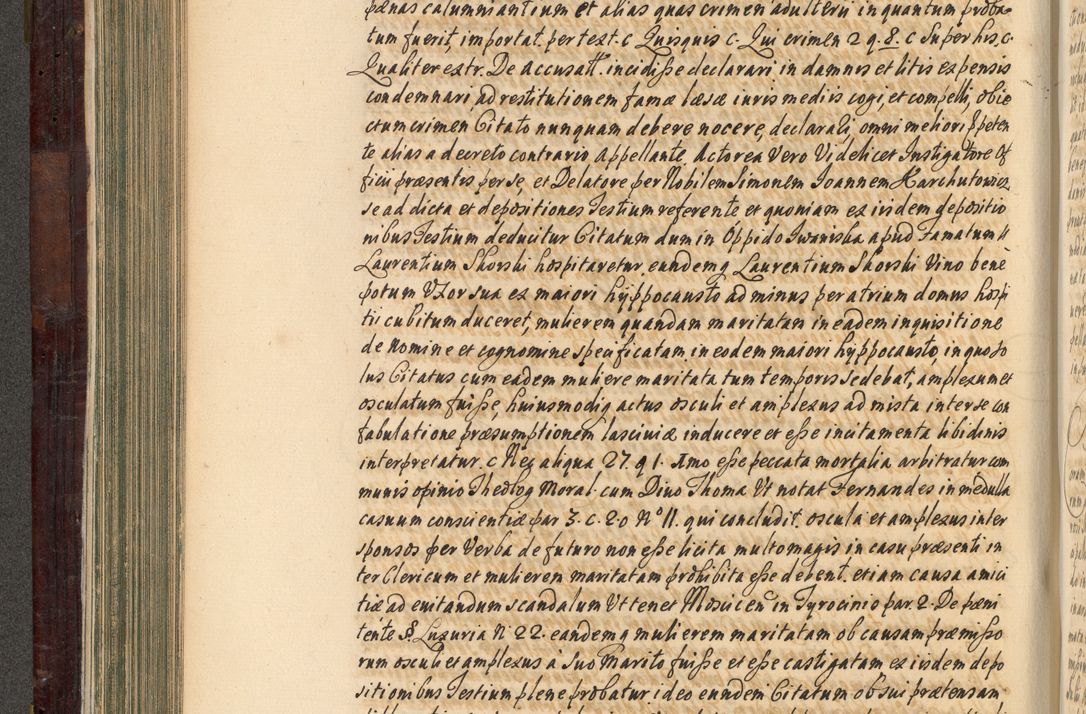 pænas calumniantium et alias quas crimen adulterii in quantum proba-
tum fuerit, importat. per text. c Quisquis c. Qui crimen 2 q. 8. c Super his, c.
Qualiter extr. De Accusatt. incidisse declarari in damnis et litis expensis
condemnari, ad restitutionem famæ læsæ iuris mediis cogi, et compelli, obie
ctum crimen Citato nunquam debere nocere, declarari, omni meliori
te alias a decreto contrario Appellante, Actorea Vero Videlicet Instigatore Of
ficii præsentis per se, et Delatore per Nobilem Simonem Ioannem Harchutowicz
se ad dicta et depositiones Testium referente et quoniam ex iisdem depositio
nibus Testium deducitur Citatum dum in Oppido Iwaniska apud Famatum
Laurentium Skorski hospitaretur, eundemq Laurentium Skorski Vino bene
potum Uxor sua ex maiori hyppocausto ad minus per atrium domus hospi
tii cubitum duceret, mulierem quandam maritatam in eadem inquisitione
de nomine et cognomine specificatam, in eodem maiori hyppocausto, in quo so
lus Citatus cum eadem muliere maritata tum temporis sedebat, amplexum et
osculatum fuisse, huiusmodiq actus osculi et amplexus ad mista inter se con
fabulatione præsumptionem lasciviæ inducere et esse incitamenta libidinis
interpretatur. c Nec aliqua 27. q 1. Imo esse peccata mortalia arbitratur com
munis opinio Theolog Moral. cum Divo Thoma Ut notat Fernandes in medulla
casuum conscientiæ par 3. c. 20 N° 11. qui concludit. oscula et amplexus inter
sponsos per Verba de futuro non esse licita multo magis in casu præsenti in
ter Clericum et mulierem maritatam prohibita esse debent. etiam causa amici
tiæ ad evitandum scandalum Ut tenet Moscicen in Tyrocinio par. 2. De pæni
tente § Luxuria N 22. eandemq mulierem maritatam ob causam præmisso
rum osculi et amplexus a suo Marito fuisse et esse castigatam ex iisdem depo
sitionibus Testium plene probatur ideo eundem Citatum ob sui prætensam